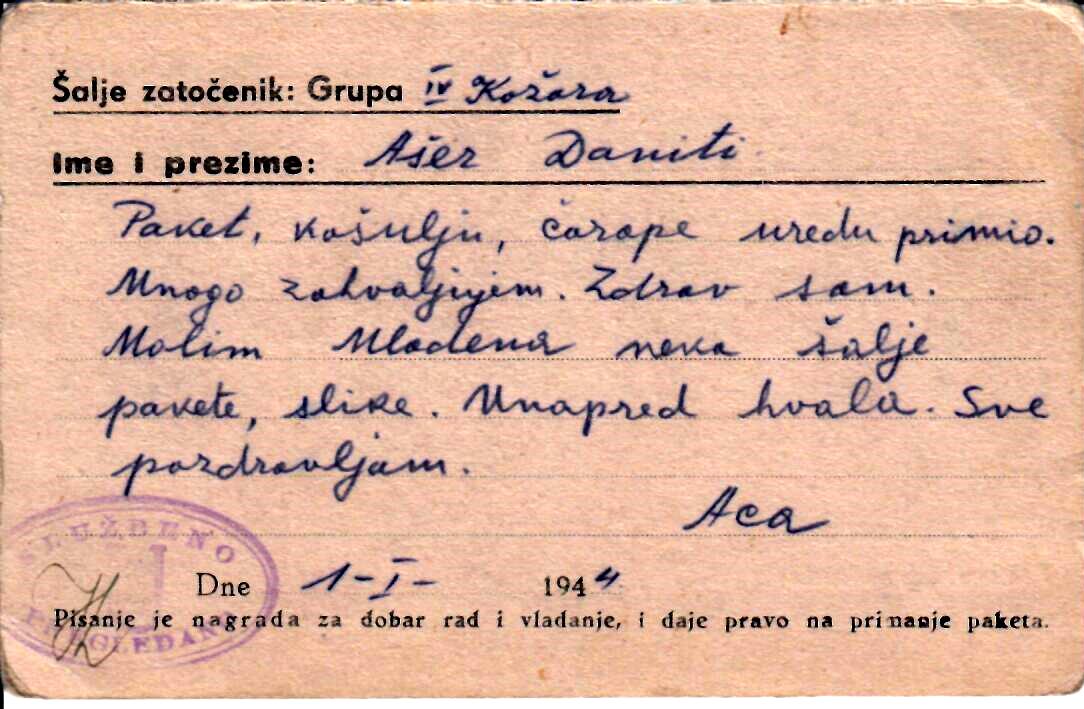 Šalje zatočenik: Grupa IV Kožara
Ime i prezime: Ašer Daniti
Paket, košulju, čarape uredu primio.
Mnogo zahvaljujem. Zdrav sam.
Molim Mladena neka šalje
pakete, slike. Unapred hvala. Sve
pozdravljam.
Aca
SLUŽBENO
PREGLEDANO
Dne 1-I- 1944
Pisanje je nagrada za dobar rad i vladanje, i daje pravo na primanje paketa.